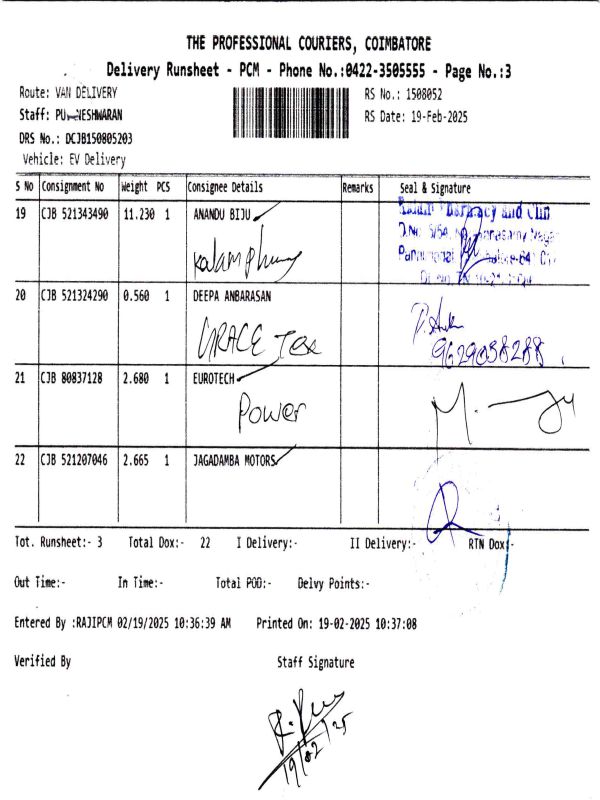 THE PROFESSIONAL COURIERS, COIMBATORE
Delivery Runsheet - PCM - Phone No.:0422-3505555 - Page No.:3
Route: VAN DELIVERY
RS No.: 1508052
Staff:
RS Date: 19-Feb-2025
DRS No.: DCJB150805203
Vehicle: EV Delivery
S No Consignment No Weight PCS Consignee Details Remarks Seal & Signature
19 CJB 521343490 11.230 1 ANANDU BIJU
Pharmacy and
Kalam
20 CJB 521324290 0.560 1 DEEPA ANBARASAN
GRACE Tex
9629038288
21 CJB 80837128 2.680 1 EUROTECH
Power
22 CJB 521207046 2.665 1 JAGADAMBA MOTORS
Tot. Runsheet:- 3 Total Dox:- 22 I Delivery:- II Delivery:- RTN Dox:-
Out Time:- In Time:- Total POD:- Delvy Points:-
Entered By :RAJIPCM 02/19/2025 10:36:39 AM Printed On: 19-02-2025 10:37:08
Verified By Staff Signature
19/02/25